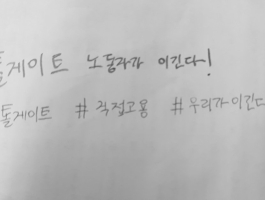 톨게이트 노동자가 이긴다!
톨게이트 #직접고용 #우리가이긴다